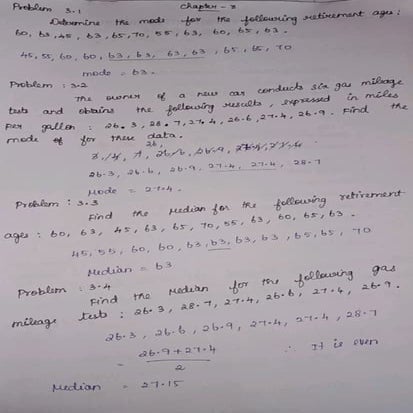 Chapter - 3
Problem 3.1
Determine the mode for the following retirement ages:
60, 63, 45, 63, 65, 70, 55, 63, 60, 65, 63.
45, 55, 60, 60, 63, 63, 63, 63, 65, 65, 70
mode = 63.
Problem : 3.2
The owner of a new car conducts six gas mileage
tests and obtains the following results, expressed in miles
per gallon : 26.3, 28.7, 27.4, 26.6, 27.4, 26.9. Find the
mode of for these data.
26.3, 26.6, 26.9, 27.4, 27.4, 28.7
Mode = 27.4.
Problem : 3.3
Find the Median for the following retirement
ages : 60, 63, 45, 63, 65, 70, 55, 63, 60, 65, 63.
45, 55, 60, 60, 63, 63, 63, 63, 65, 65, 70
Median = 63
Problem : 3.4
Find the Median for the following gas
mileage tests : 26.3, 28.7, 27.4, 26.6, 27.4, 26.9.
26.3, 26.6, 26.9, 27.4, 27.4, 28.7
= 26.9 + 27.4 ∴ It is even
2
Median = 27.15